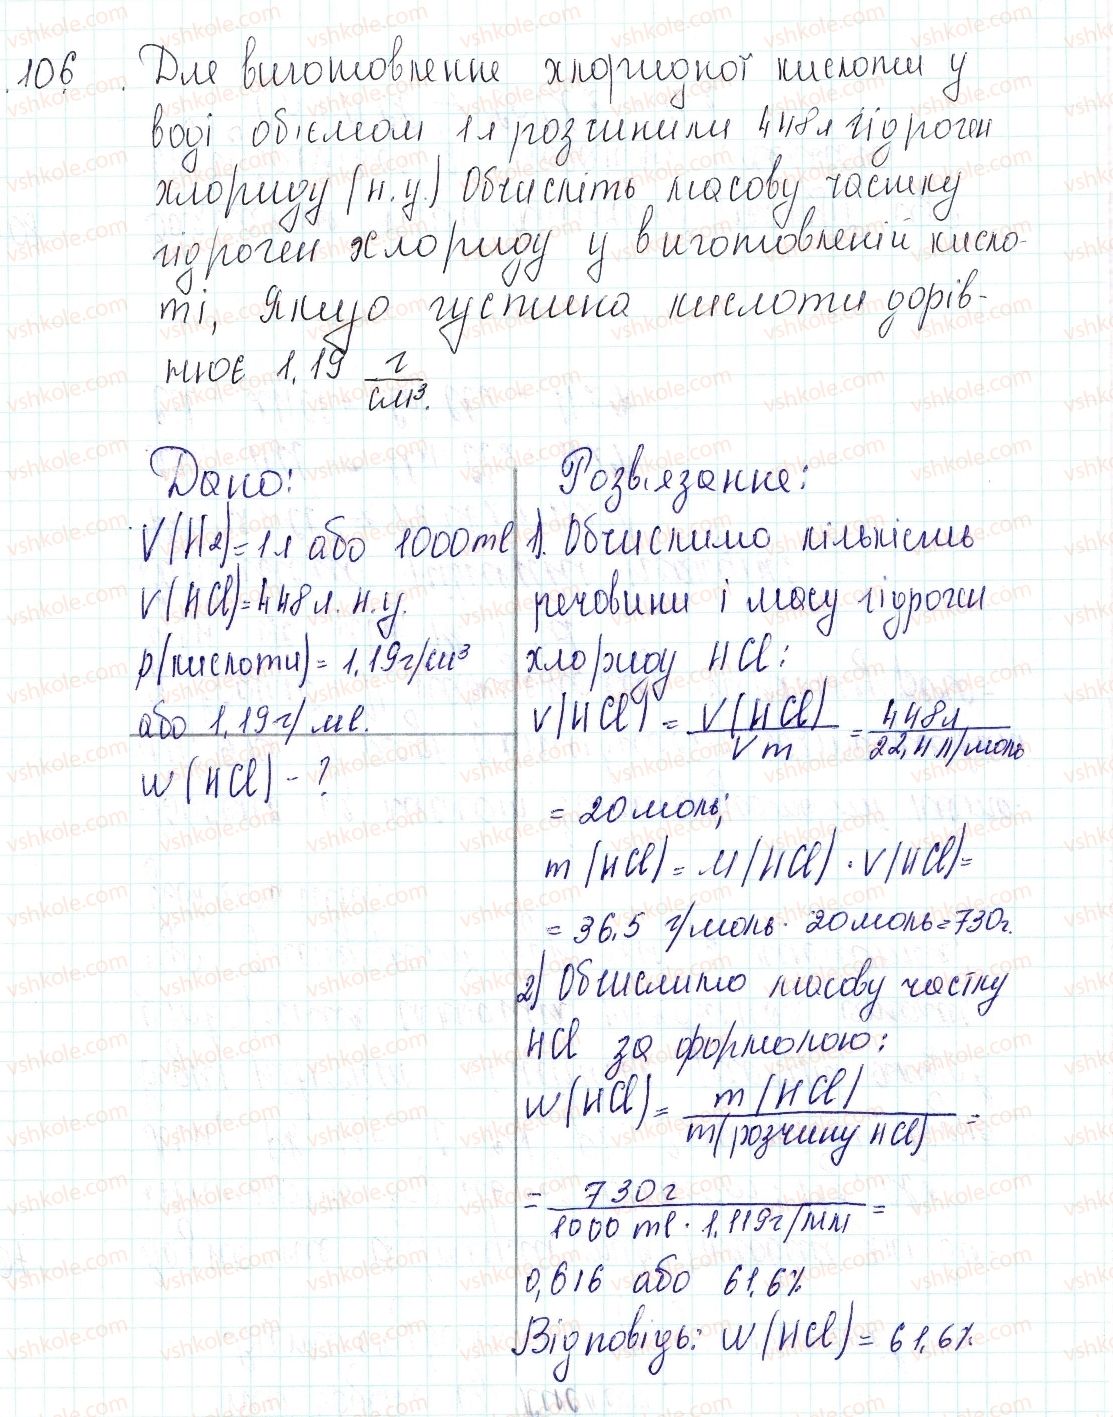 106. Для виготовлення хлоридної кислоти у
воді об'ємом 1л розчинили 448л гідроген
хлориду (н.у.) Обчисліть масову частку
гідроген хлориду у виготовленій кисло-
ті, якщо густина кислоти дорів-
нює 1,19 г/см³.
Дано:
V(H2)=1л або 1000ml
V(HCl)=448л. н.у.
ρ(кислоти)=1,19г/см³
або 1,19г/мл.
w(HCl) - ?
Розв'язання:
1). Обчислимо кількість
речовини і масу гідроген
хлориду HCl:
ν(HCl) = V(HCl)/Vm = 448л/22,4л/моль
= 20моль;
m(HCl) = M(HCl) · ν(HCl)=
= 36,5 г/моль · 20моль=730г.
2) Обчислимо масову частку
HCl за формолою:
w(HCl) = m(HCl)/m(розчину HCl) =
= 730г/1000ml · 1,119г/мл =
0,616 або 61,6%
Відповідь: w(HCl) = 61,6%
vshkole.com